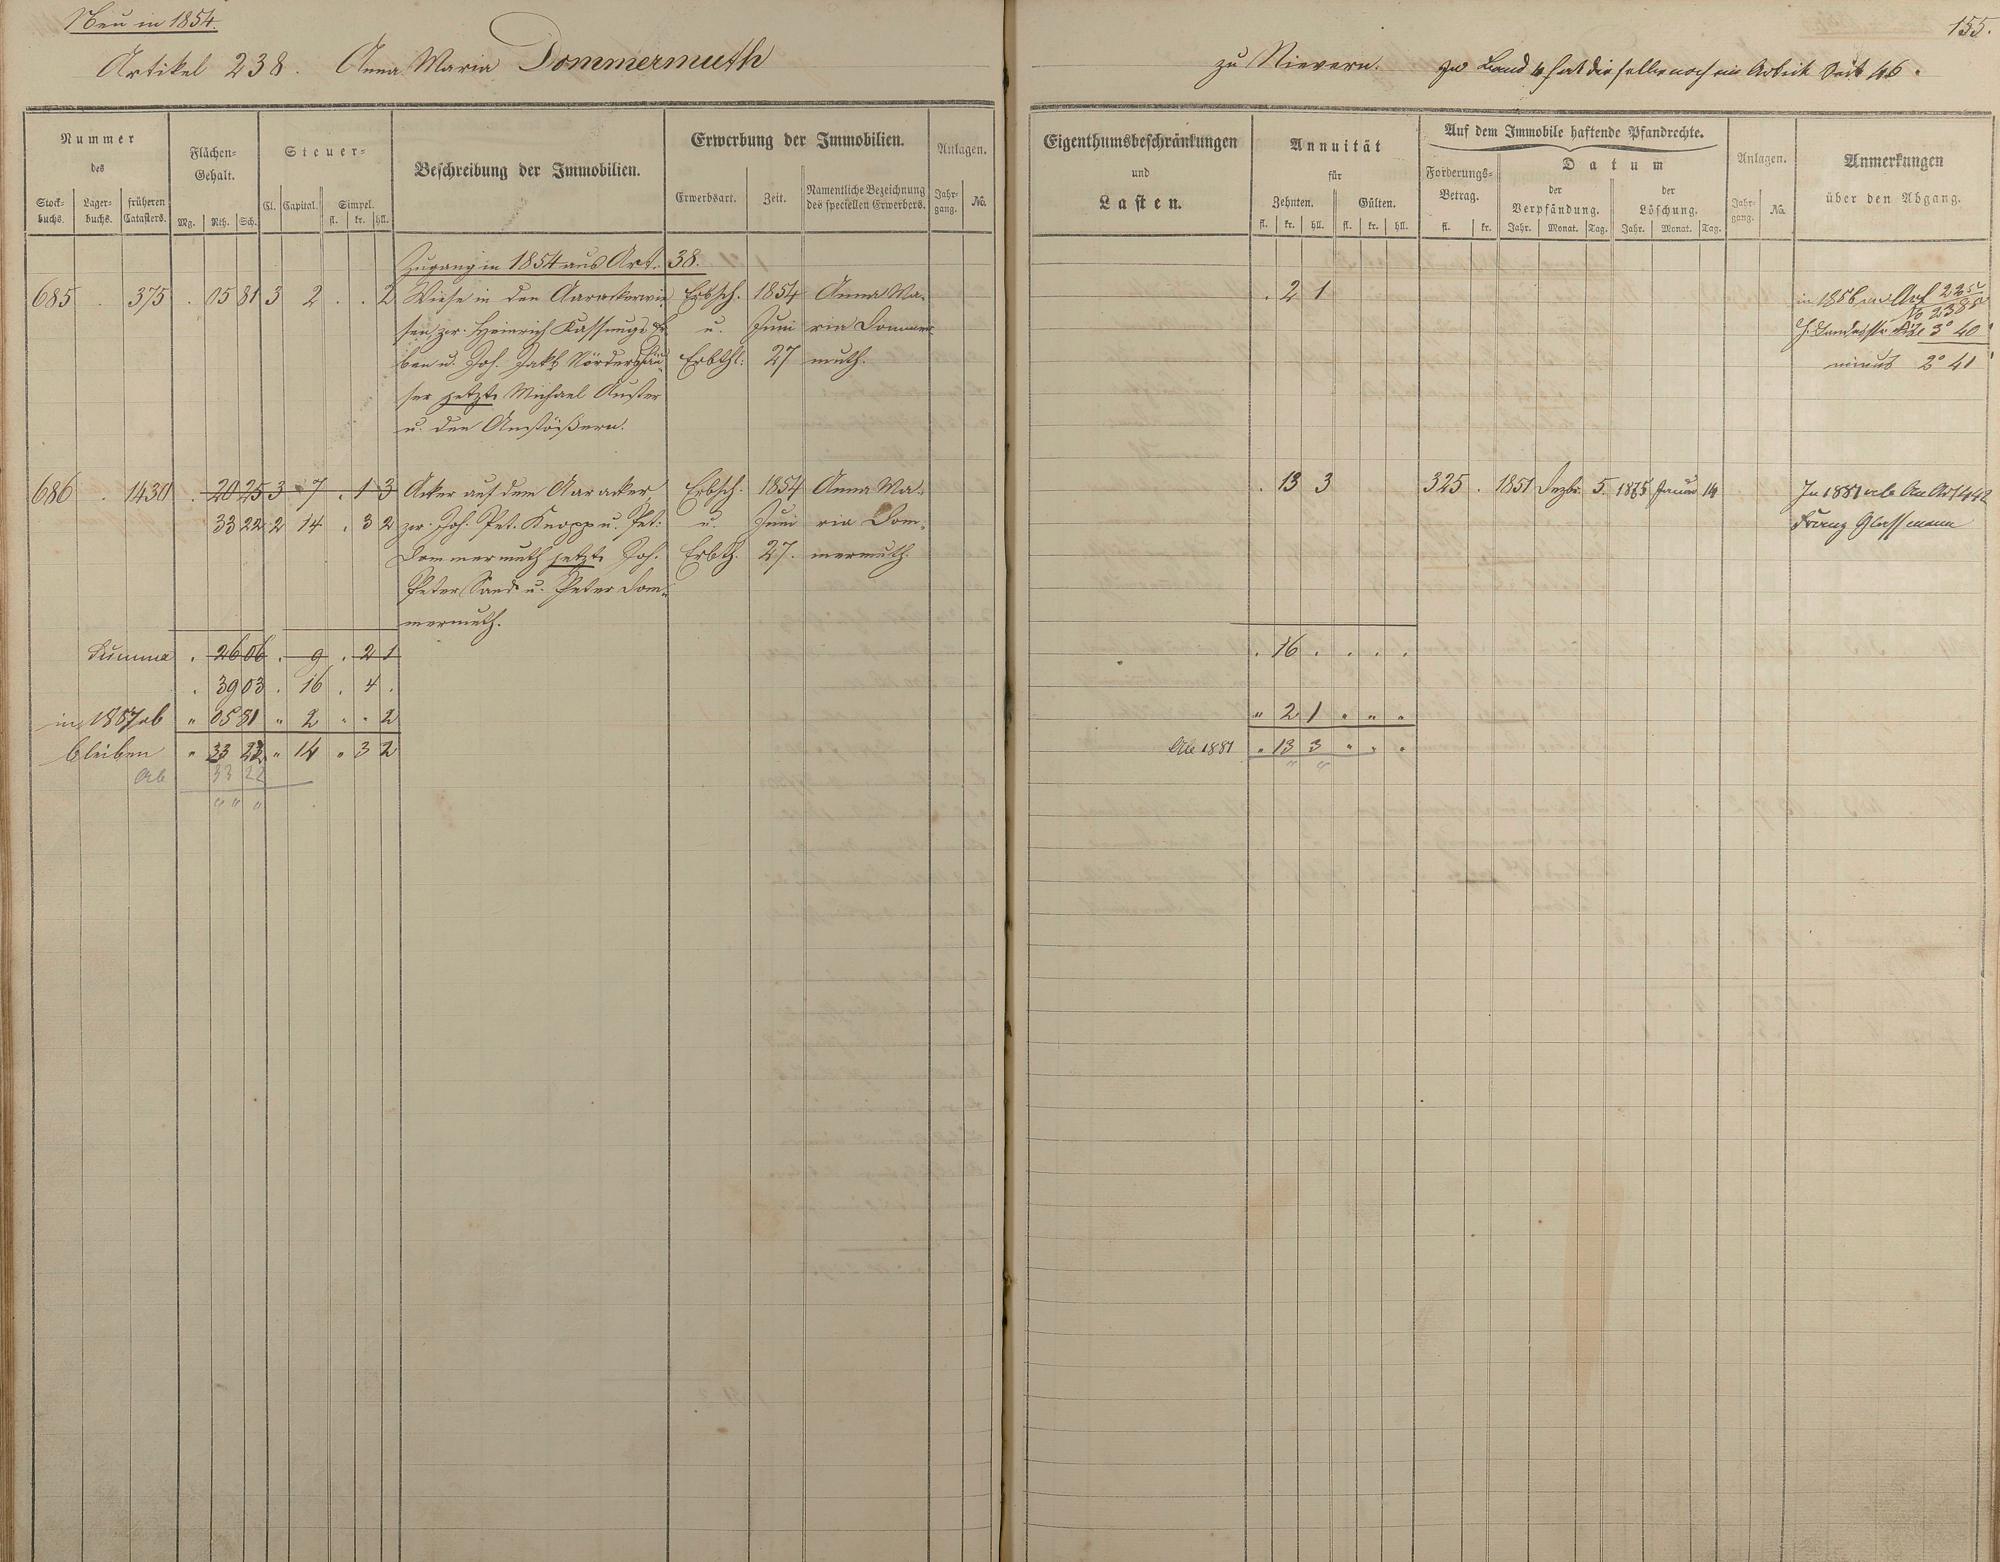 Neu in 1854.
155.
Artikel 238. Anna Maria Dommermuth
zu Nievern. In Band 4 hat dieselbe noch ein Artick Seite 46.
Nummer
des
Stock-
buchs.
Lager-
buchs.
früheren
Catasters.
Flächen-
Gehalt.
Mg. Rth. Sch.
Steuer-
Cl. Capital. Simpel.
fl. kr. hll.
Beschreibung der Immobilien.
Erwerbung der Immobilien.
Erwerbsart. Zeit.
Namentliche Bezeichnung
des speciellen Erwerbers.
Anlagen.
Jahr-
gang.
No.
Eigenthumsbeschränkungen
und
Lasten.
Annuität
für
Zehnten. Gülten.
fl. kr. hll. fl. kr. hll.
Auf dem Immobile haftende Pfandrechte.
Forderungs-
Betrag.
fl. kr.
Datum
der
Verpfändung.
Jahr. Monat. Tag.
der
Löschung.
Jahr. Monat. Tag.
Anlagen.
Jahr-
gang.
No.
Anmerkungen
über den Abgang.
Zugang in 1854 aus Art. 38.
685 . 375 . 05 81 3 2 . . 2 Wiese in den Aarackerwie- Erbsch. 1854 Anna Ma- . 2 1
sen, zw. Heinrich u. Juni ria Dommer-
ben u. Joh. Jakb Nördershäu- Erbthl. 27 muth.
ser jetzt Michael
u. den Anstößern.
3° 40'
minus 2° 41'
686 . 1430 . 20 25 3 7 . 1 3 Acker auf dem Aaracker, Erbsch. 1854 Anna Ma- . 13 3 325 . 1851 Dezbr. 5. 1875 Januar 14 In 1881 ab an Art 442
33 22 2 14 . 3 2 zw. Joh. Pet. Knopp u. Pet. u. Juni ria Dom- Franz Glassmann
Dommermuth jetzt Joh. Erbth. 27. mermuth.
Peter Sand u. Peter Dom-
mermuth.
Summa . 26 06 . 9 . 2 1 . 16 . . . .
. 39 03 . 16 . 4 .
in 1857 ab " 05 81 " 2 " " 2 " 2 1 " " "
bleiben " 33 22 " 14 " 3 2 Ab 1881 " 13 3 " " "
Ab 33 22 " "
" " "